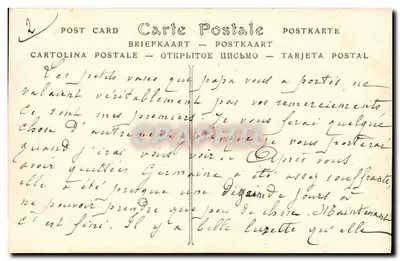 2
POST CARD Carte Postale POSTKARTE
BRIEFKAART — POSTKAART
CARTOLINA POSTALE — ОТКРЫТОЕ ПИСЬМО — TARJETA POSTAL
Les petits vases que papa vous a portés ne
valaient véritablement pas vos remerciements
Ce sont mes premiers. Je vous ferai quelque
chose d'autre que je vous porterai
quand j'irai vous voir. Après vous
avoir quittées Germaine a été assez souffrante
elle a été presque une dizaine de jours à
ne pouvoir prendre que peu de chose. Maintenant
c'est fini. Il y a belle lurette qu'elle